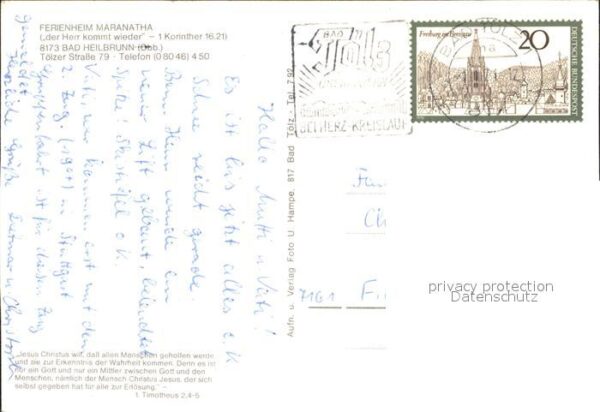 FERIENHEIM MARANATHA
(„der Herr kommt wieder" – 1 Korinther 16.21)
8173 BAD HEILBRUNN (Obb.)
Tölzer Straße 79 · Telefon (0 80 46) 4 50
Hallo Mutti u Vati!
Es ist bis jetzt alles o.K
Schnee reicht gerade.
Beim Heim wurde ein
neuer Lift gebaut, beleuchtet
Spitze! o.K.
Vati, wir kommen erst mit dem
2. Zug. (1944) in Stuttgart
ist für diesen Zug
gemeldet
Herzliche Grüße Dietmar u Christoph
„Jesus Christus will, daß allen Menschen geholfen werde
und sie zur Erkenntnis der Wahrheit kommen. Denn es ist
nur ein Gott und nur ein Mittler zwischen Gott und den
Menschen, nämlich der Mensch Christus Jesus, der sich
selbst gegeben hat für alle zur Erlösung." –
1. Timotheus 2,4-6
Aufn. u. Verlag Foto U. Hampe, 817 Bad Tölz, Tel. 7 92
BAD
Tölz
BEI HERZ-KREISLAUF
BAD TÖLZ
Freiburg im Breisgau
20
DEUTSCHE BUNDESPOST
Fam
Ch
7161
F
privacy protection
Datenschutz